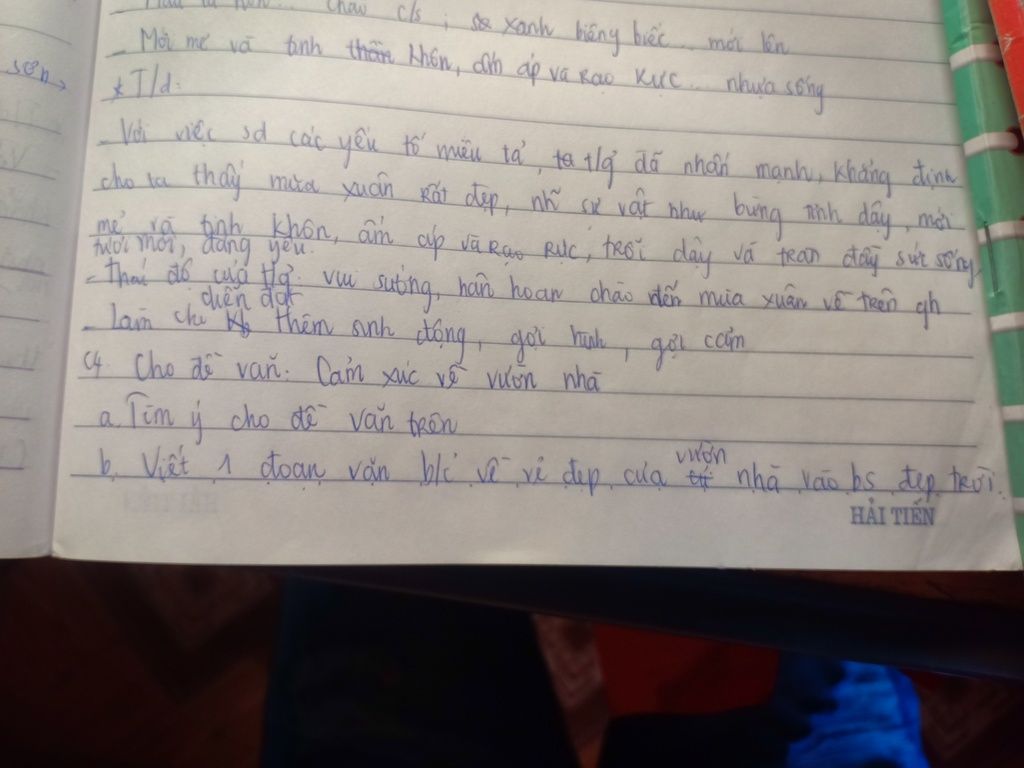 chào c/s, xanh biêng biếc... mới lên
- Mới mẻ và tinh khôn, ấm áp và rạo rực... nhựa sống
sơn
* T/d:
- Với việc sd các yếu tố miêu tả, t/g đã nhấn mạnh, khẳng định
cho ta thấy mùa xuân rất đẹp, nh~ sự vật như bừng tỉnh dậy, mới
mẻ và tinh khôn, ấm áp và rạo rực, trỗi dậy và tràn đầy sức sống,
tươi mới, đáng yêu.
- Thái độ của t/g: vui sướng, hân hoan chào đến mùa xuân về trên qh
- làm cho diễn đạt thêm sinh động, gợi hình, gợi cảm
C4. Cho đề văn: Cảm xúc về vườn nhà
a. Tìm ý cho đề văn trên
b. Viết 1 đoạn văn b/c về vẻ đẹp của vườn nhà vào b/s đẹp trời.
HẢI TIẾN